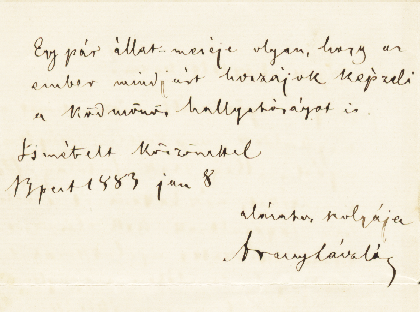 Egy pár állat-meséje olyan, hogy az
ember mindjárt hozzájok képzeli
a ködmönös hallgatóságot is.
Ismételt köszönettel
Bpest 1883 jan 8
alázatos szolgája
Arany László